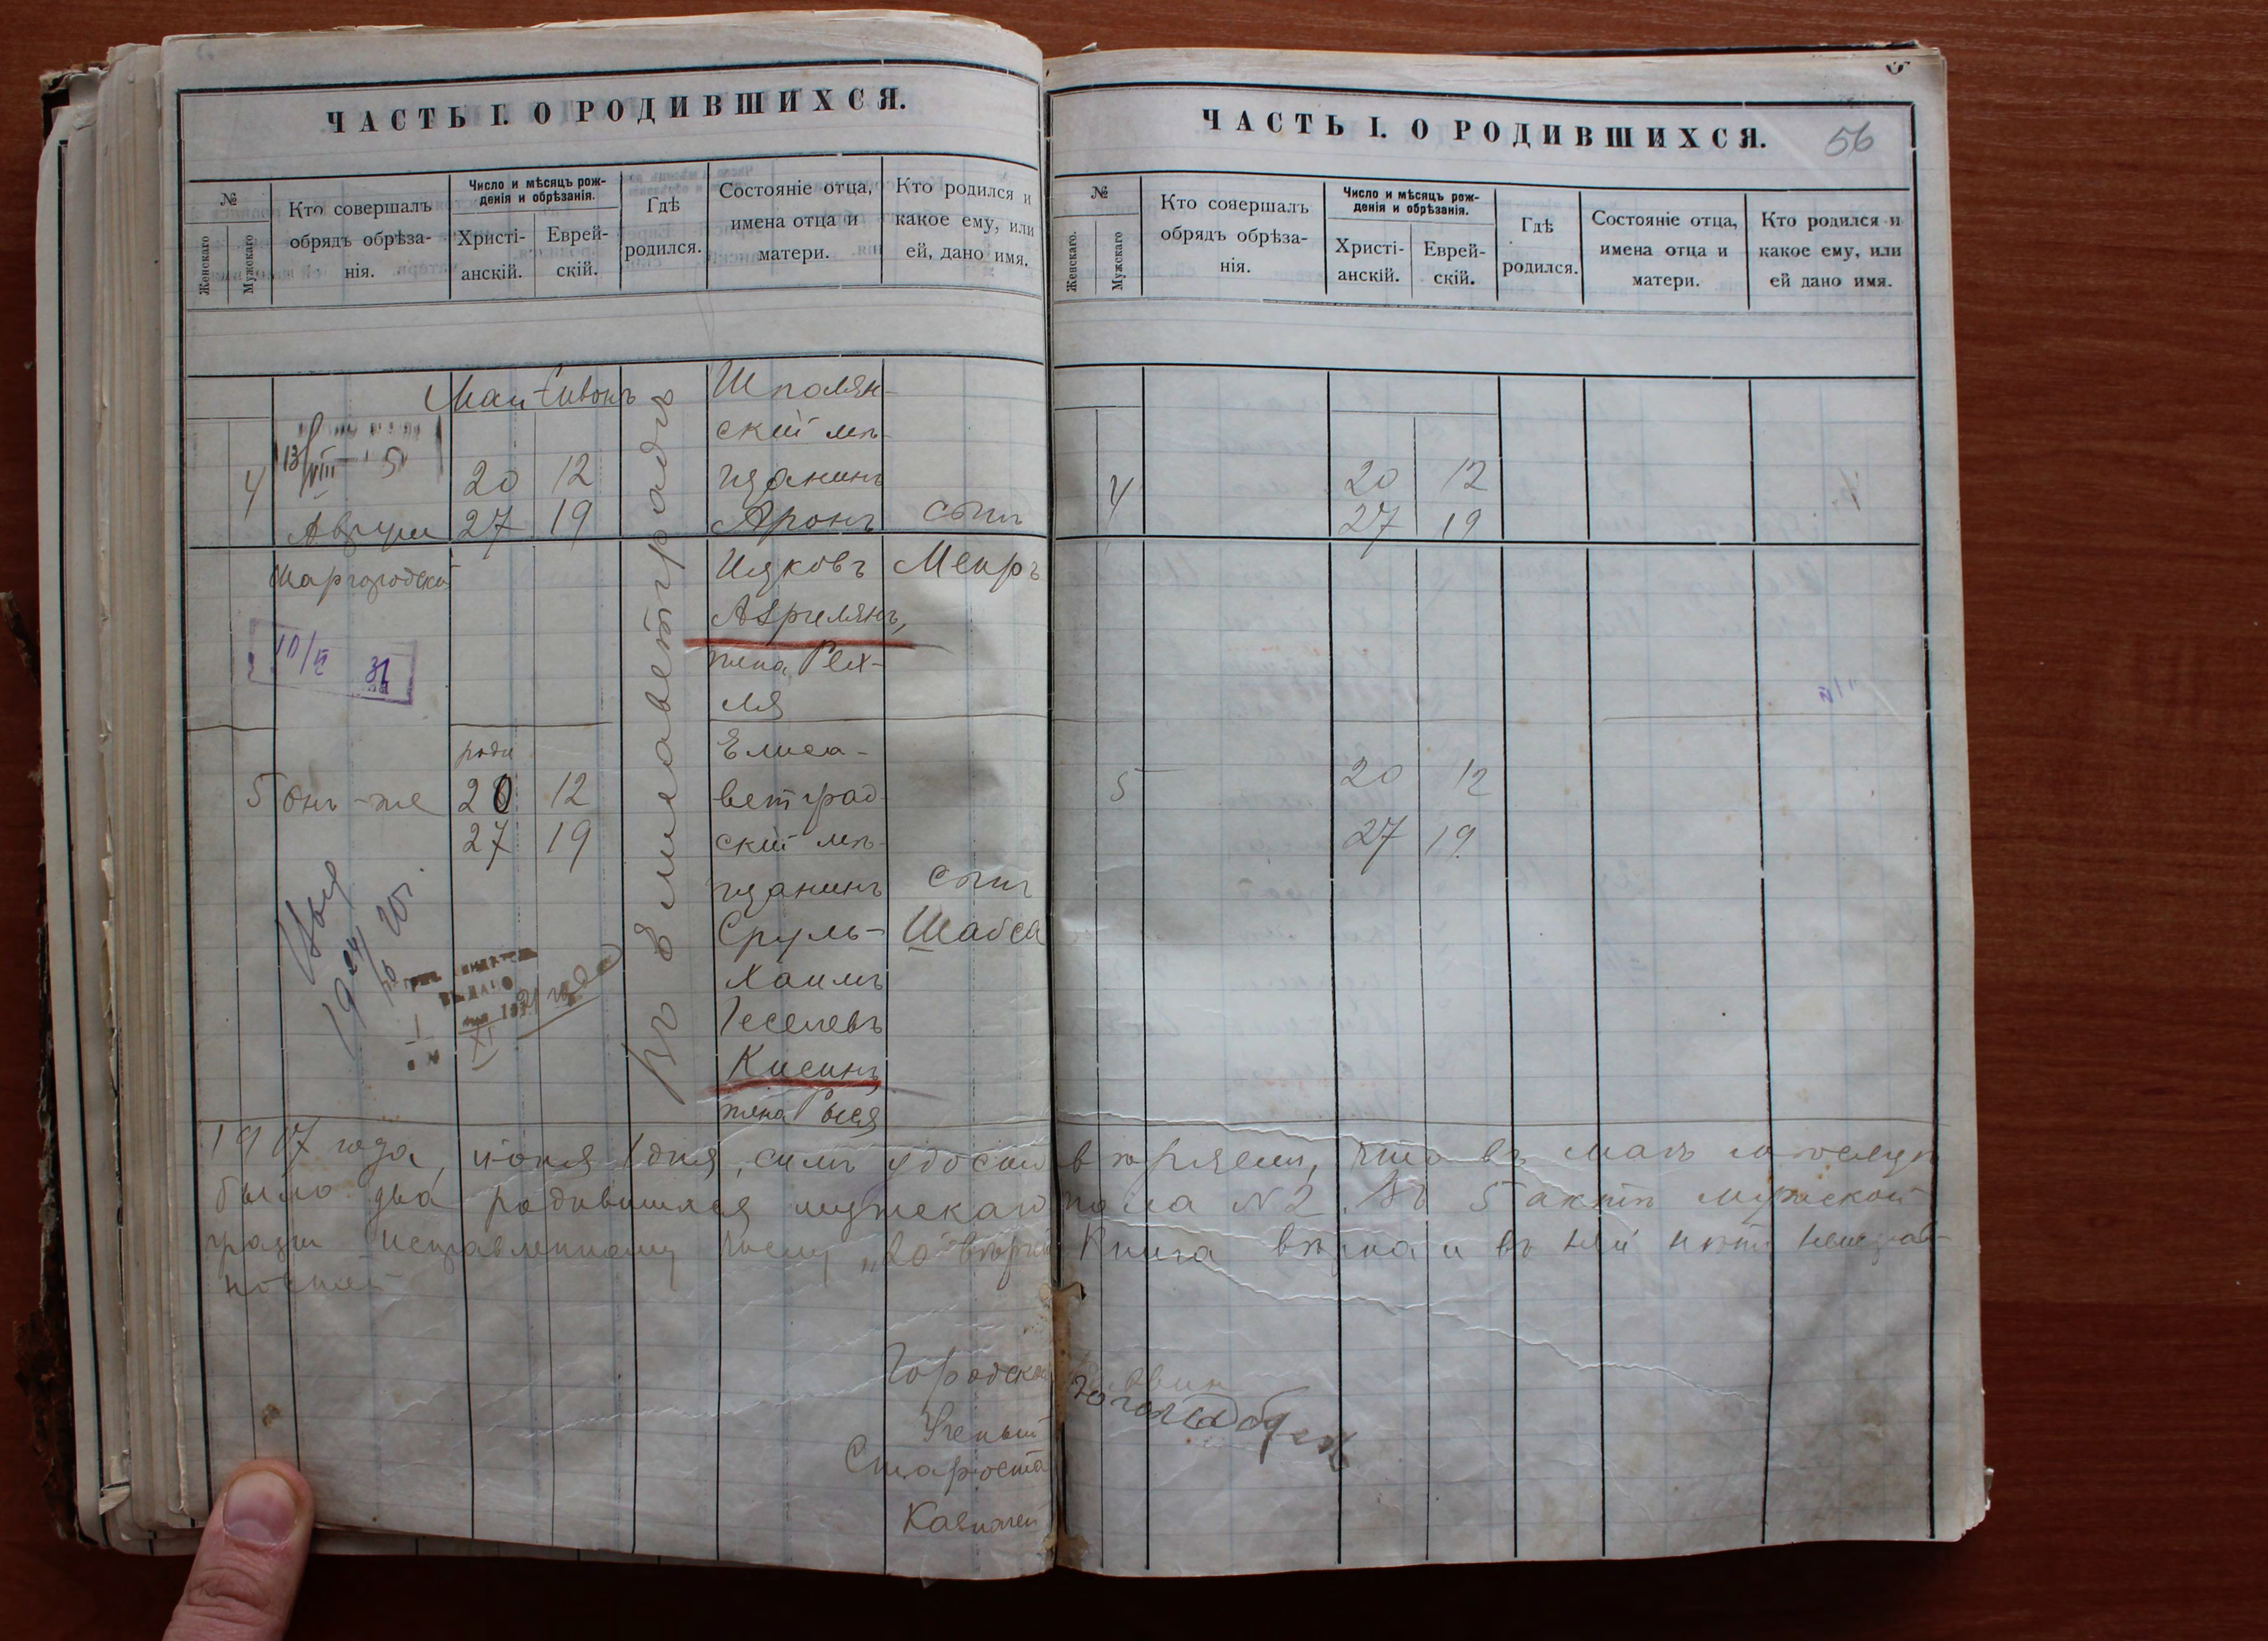 ЧАСТЬ I. О РОДИВШИХСЯ.
№
Женскаго
Мужскаго
Кто совершалъ
обрядъ обрѣза-
нія.
Число и мѣсяцъ рож-
денія и обрѣзанія.
Христі-
анскій.
Еврей-
скій.
Гдѣ
родился.
Состояніе отца,
имена отца и
матери.
Кто родился и
какое ему, или
ей, дано имя.
Май Сивонъ
4
13/VIII
Аврум
Шаргородской
20 12
27 19
Въ Елисаветградѣ
Шполян-
скій мѣ-
щанинъ
Аронъ
Ицковъ
жена Рех-
ля
сынъ
Меиръ
10/VI 31
5
онъ-же
роди
20 12
27 19
Елиса-
ветград
скій мѣ-
щанинъ
Сруль-
Хаимъ
Іоселевъ
Кисинъ
жена Рыся
сынъ
Шабса
ВЫДАНО
XI
ЧАСТЬ I. О РОДИВШИХСЯ.
56
№
Женскаго.
Мужскаго
Кто соверщалъ
обрядъ обрѣза-
нія.
Число и мѣсяцъ рож-
денія и обрѣзанія.
Христі-
анскій.
Еврей-
скій.
Гдѣ
родился.
Состояніе отца,
имена отца и
матери.
Кто родился и
какое ему, или
ей дано имя.
4
20 12
27 19
5
20 12
27 19
1907 года, іюня 1 дня, симъ удостовѣряемъ, что въ маѣ мѣсяцѣ
было два родившихся мужскаго пола №2. Въ 5 актѣ мужской
графы исправленному числу „20" вѣрить Книга вѣрна и въ ней нѣтъ неисправ-
ностей
Городской Раввин
Ученый
Староста
Казначей